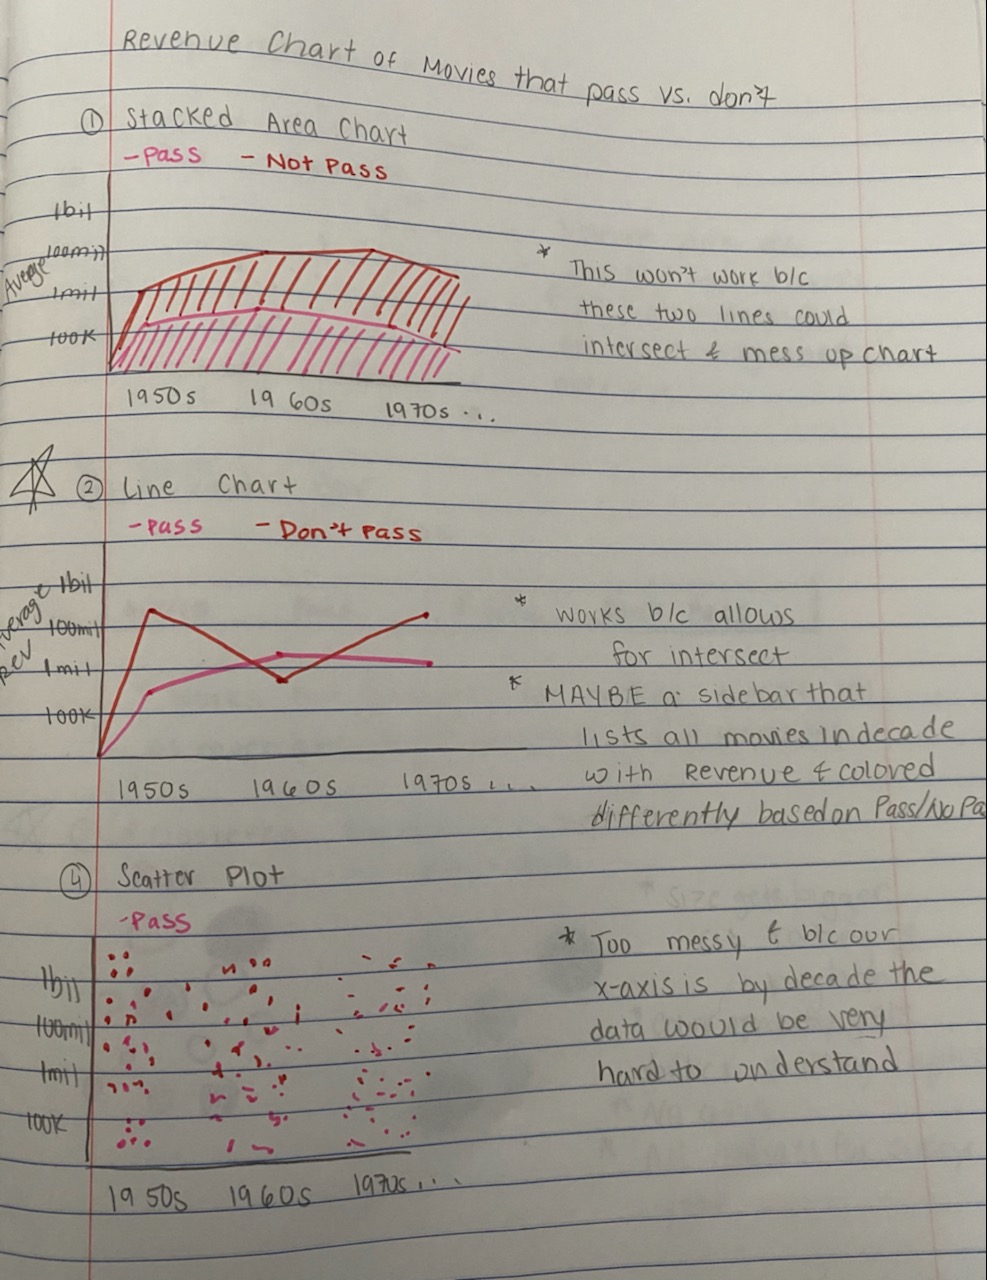 Revenue Chart of Movies that pass vs. don't
① Stacked Area Chart
- Pass - Not Pass
1bil
100mil
1mil
100K
Averge
1950s 1960s 1970s ...
* This won't work b/c
these two lines could
intersect & mess up chart
② Line Chart
- Pass - Don't Pass
1bil
100mil
1mil
100K
verage
Rev
1950s 1960s 1970s ...
* works b/c allows
for intersect
* MAYBE a sidebar that
lists all movies in decade
with Revenue & colored
differently based on Pass/No Pa
④ Scatter Plot
- Pass
1bil
100mil
1mil
100K
1950s 1960s 1970s ...
* Too messy & b/c our
x-axis is by decade the
data would be very
hard to understand